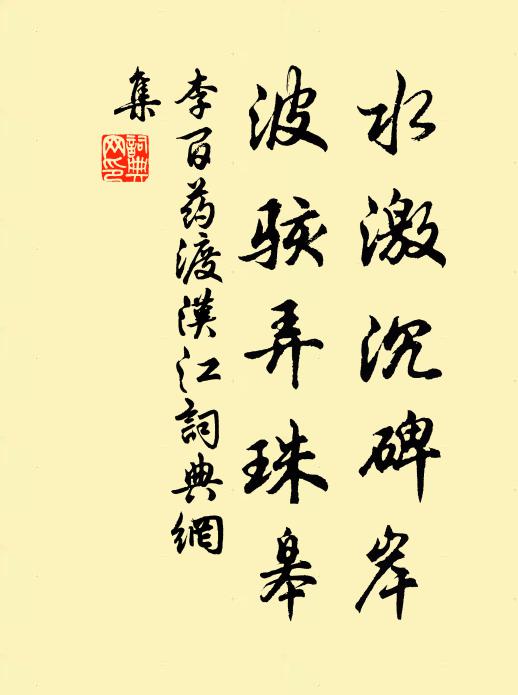 水激沉碑岸
波骇弄珠皋
李百药渡漢江詞典網
集
詞典网印